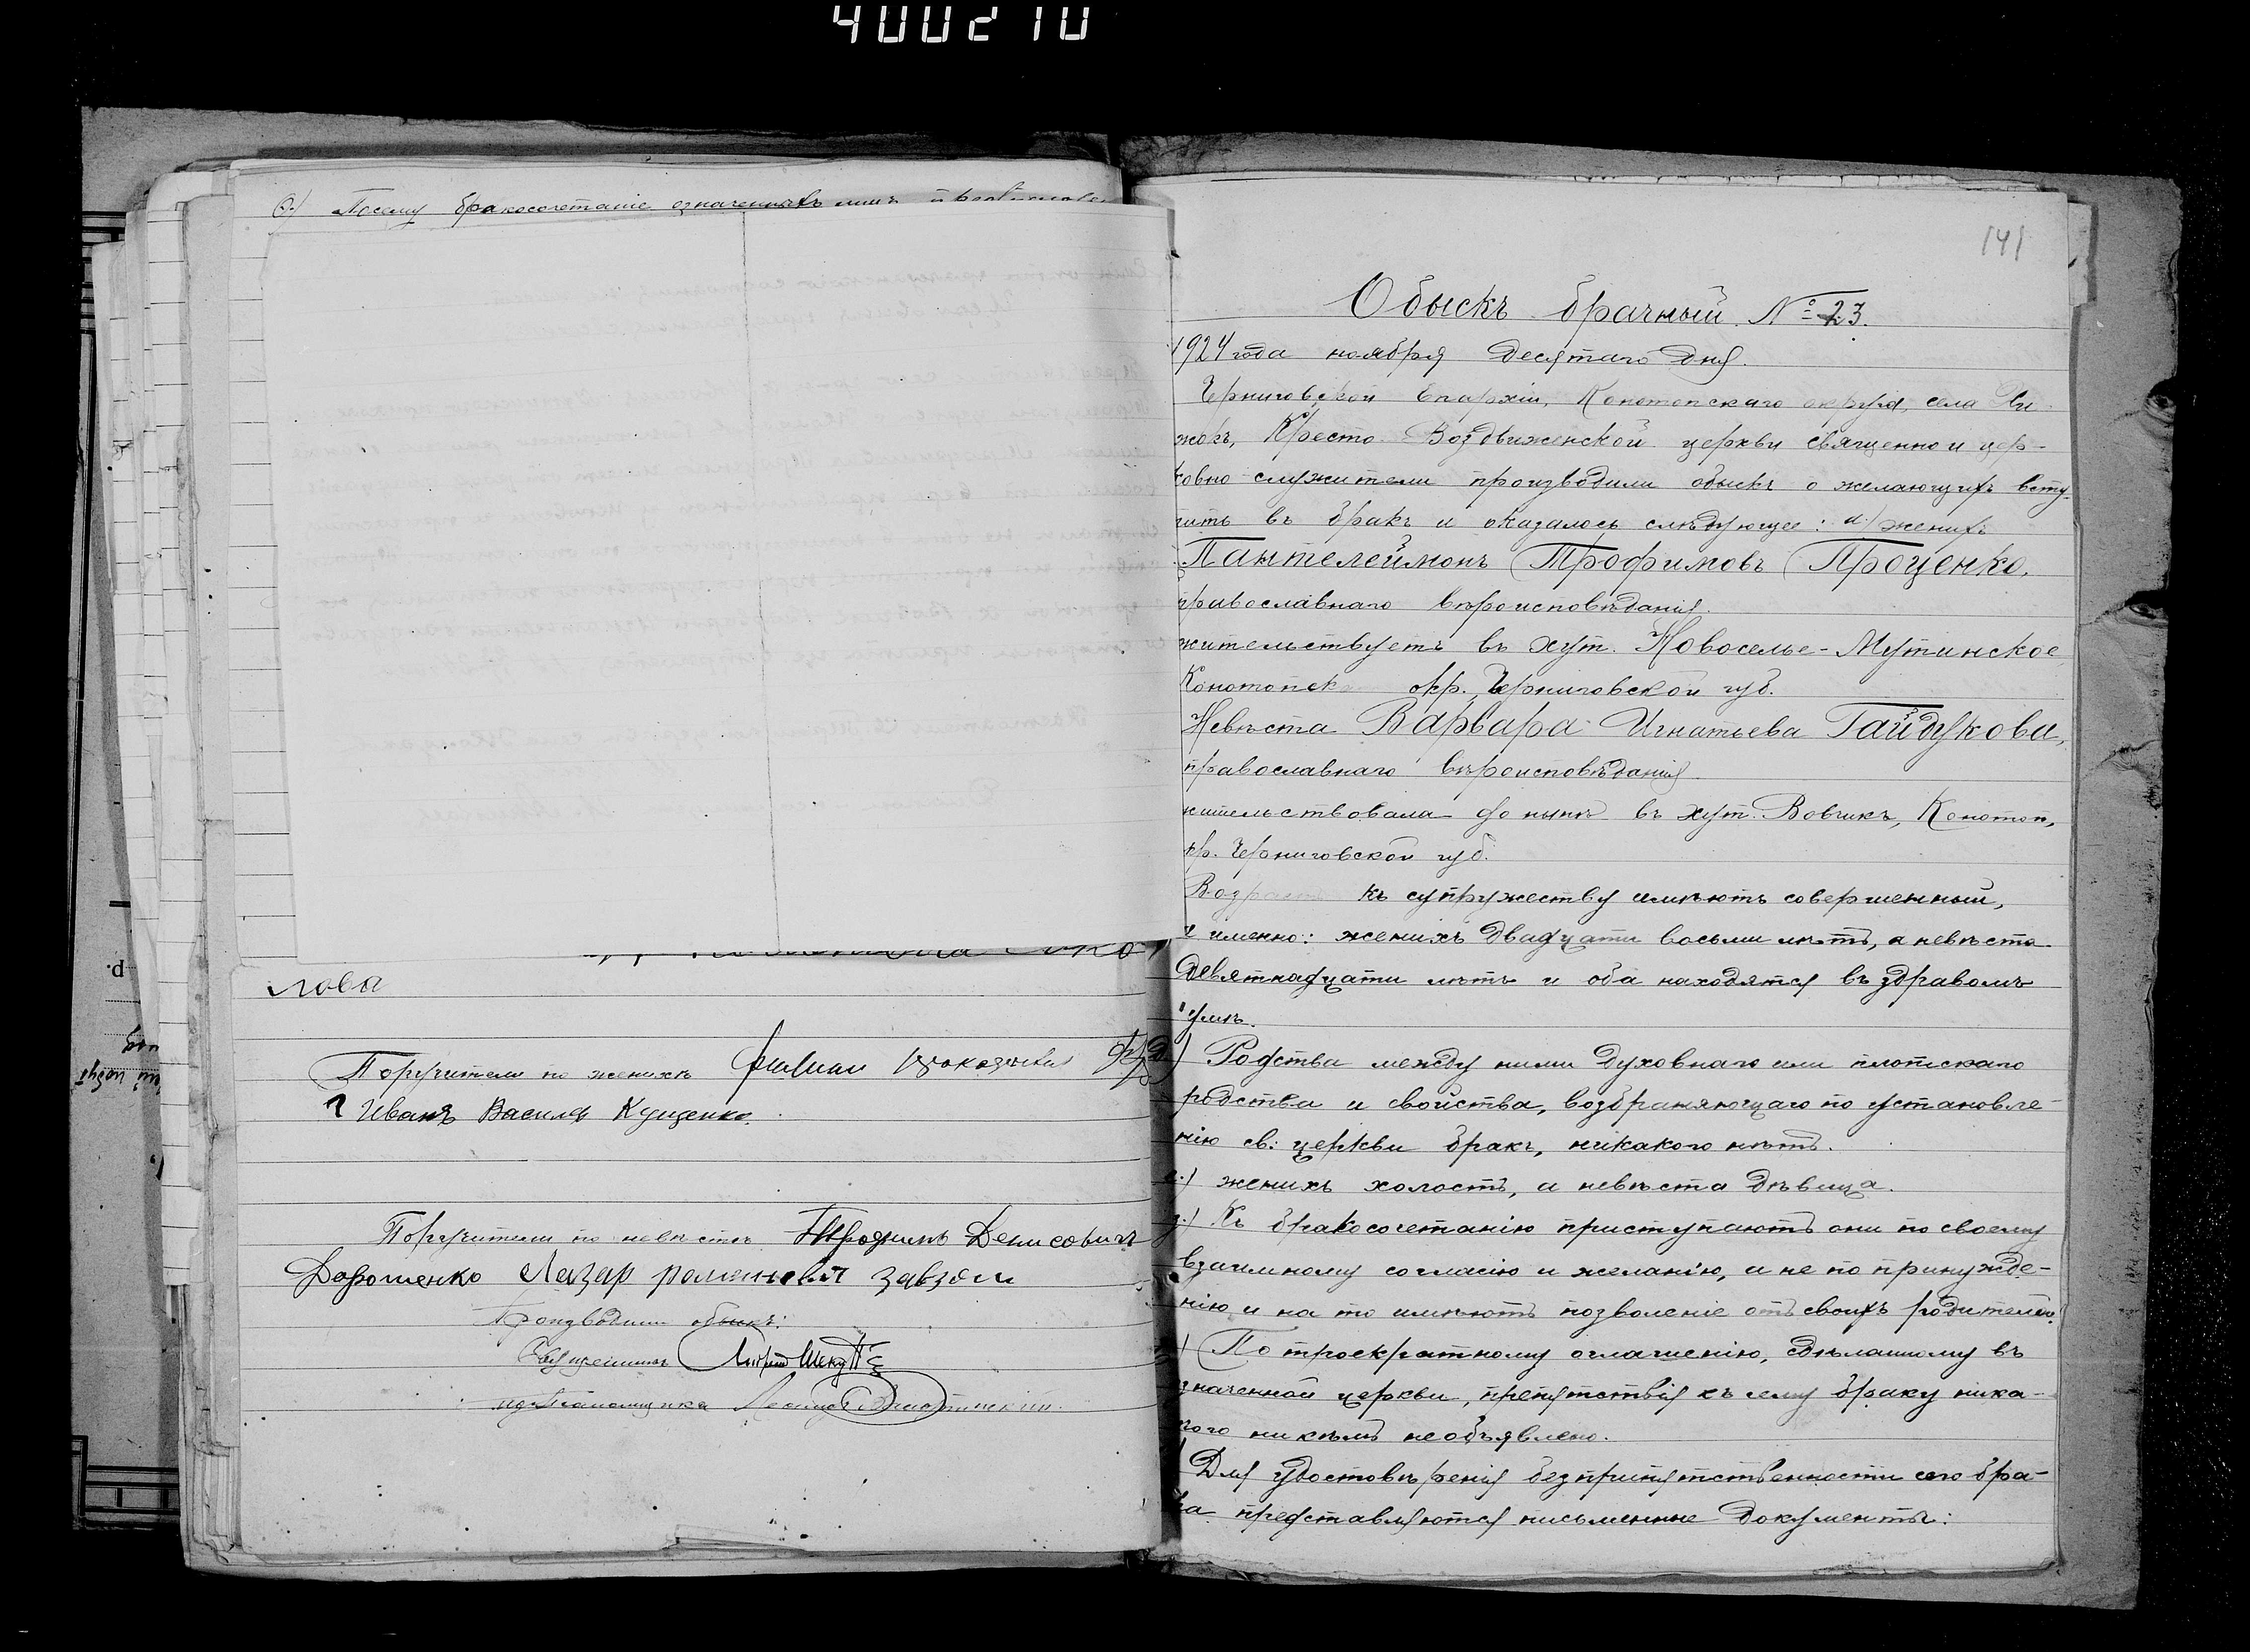 400210
6.) Посему бракосочетаніе означенныхъ лицъ
лова
Поручители по женихѣ
Иванъ Василев Куценко.
Поручители по невѣстѣ Трофимъ Денисовичъ
Дорошенко Лазар
Производили обыскъ:
Священникъ
141
Обыскъ брачный. № 23.
1924 года ноября десятаго дня.
Черниговской Епархіи, Конотопскаго округа, села Хи-
жокъ, Кресто-Воздвиженской церкви священно и цер-
ковно-служители производили обыскъ о желающихъ всту-
пить въ бракъ и оказалось слѣдующее: а) женихъ
Пантелеймонъ Трофимовъ Проценко,
православнаго вѣроисповѣданія.
жительствуетъ въ хут. Новоселье-Мутинское
Конотопск окр., Черниговской губ.
Невѣста Варвара Игнатьева Гайдукова,
православнаго вѣроисповѣданія.
жительствовала до нынѣ въ хут. Вовчикъ, Конотоп,
окр. Черниговской губ.
Возрастъ къ супружеству имѣютъ совершенный,
и именно: женихъ двадцати восьми лѣтъ, а невѣста
девятнадцати лѣтъ и оба находятся въ здравомъ
умѣ.
) Родства между ними духовнаго или плотскаго
родства и свойства, возбраняющаго по установле-
нію св: церкви бракъ, никакого нѣтъ.
) женихъ холостъ, а невѣста дѣвица.
) Къ бракосочетанію приступаютъ они по своему
взаимному согласію и желанію, а не по принужде-
нію и на то имѣютъ позволеніе отъ своихъ родителей.
) По троекратному оглашенію, сдѣланному въ
значенной церкви, препятствія къ сему браку ника-
кого никѣмъ не объявлено.
Для удостовѣренія безпрепятственности сего бра-
ка представляются письменные документы: